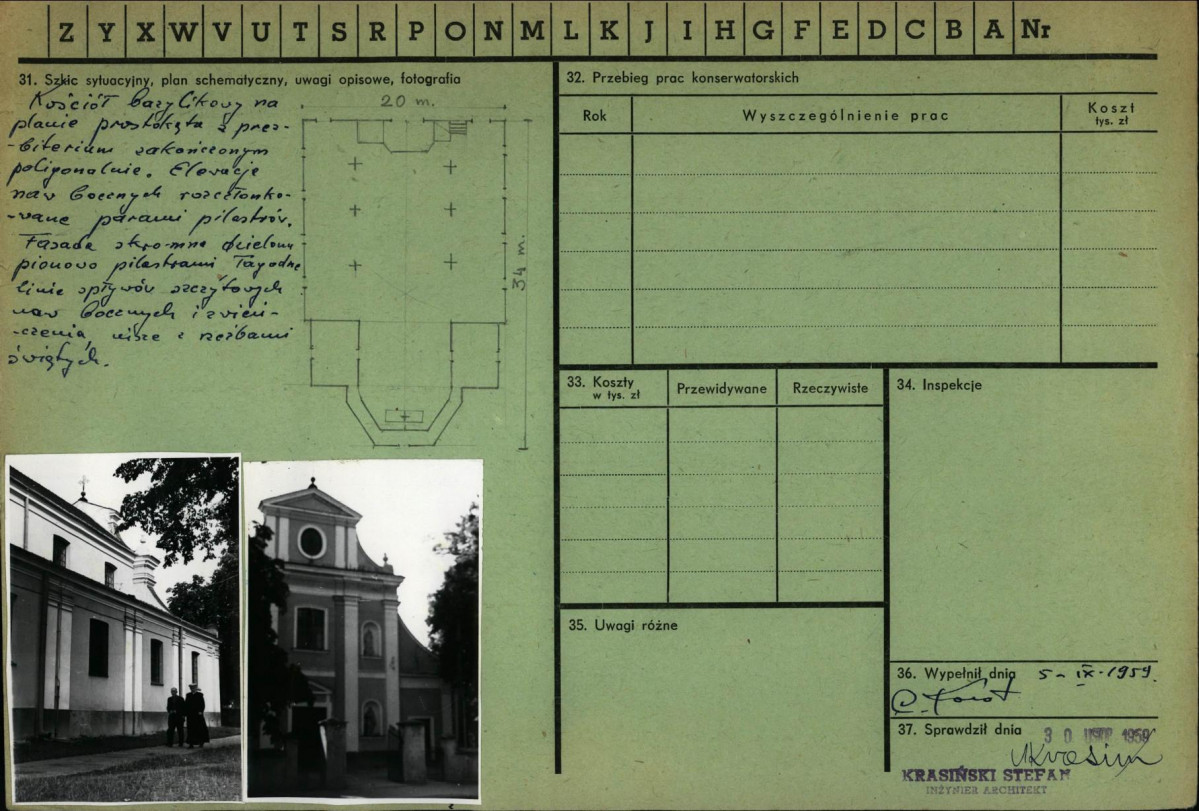 Z Y X W V U T S R P O N M L K J I H G F E D C B A Nr
31. Szkic sytuacyjny, plan schematyczny, uwagi opisowe, fotografia
Kościół bazylikowy na
planie prostokąta z prez-
-biterium zakończonym
poligonalnie. Elewacje
naw bocznych rozczłonko-
-wane parami pilastrów.
Fasada skromna dzielona
pionowo pilastrami Łagodne
linie spływów szczytowych
naw bocznych i zwień-
-czenia, nisze z rzeźbami
świętych.
20 m.
34 m.
32. Przebieg prac konserwatorskich
Rok
Wyszczególnienie prac
Koszt
tys. zł
33. Koszty
w tys. zł
Przewidywane
Rzeczywiste
34. Inspekcje
35. Uwagi różne
36. Wypełnił dnia 5-IX-1959.
37. Sprawdził dnia 30 LISTOP 1959
KRASIŃSKI STEFAN
INŻYNIER ARCHITEKT